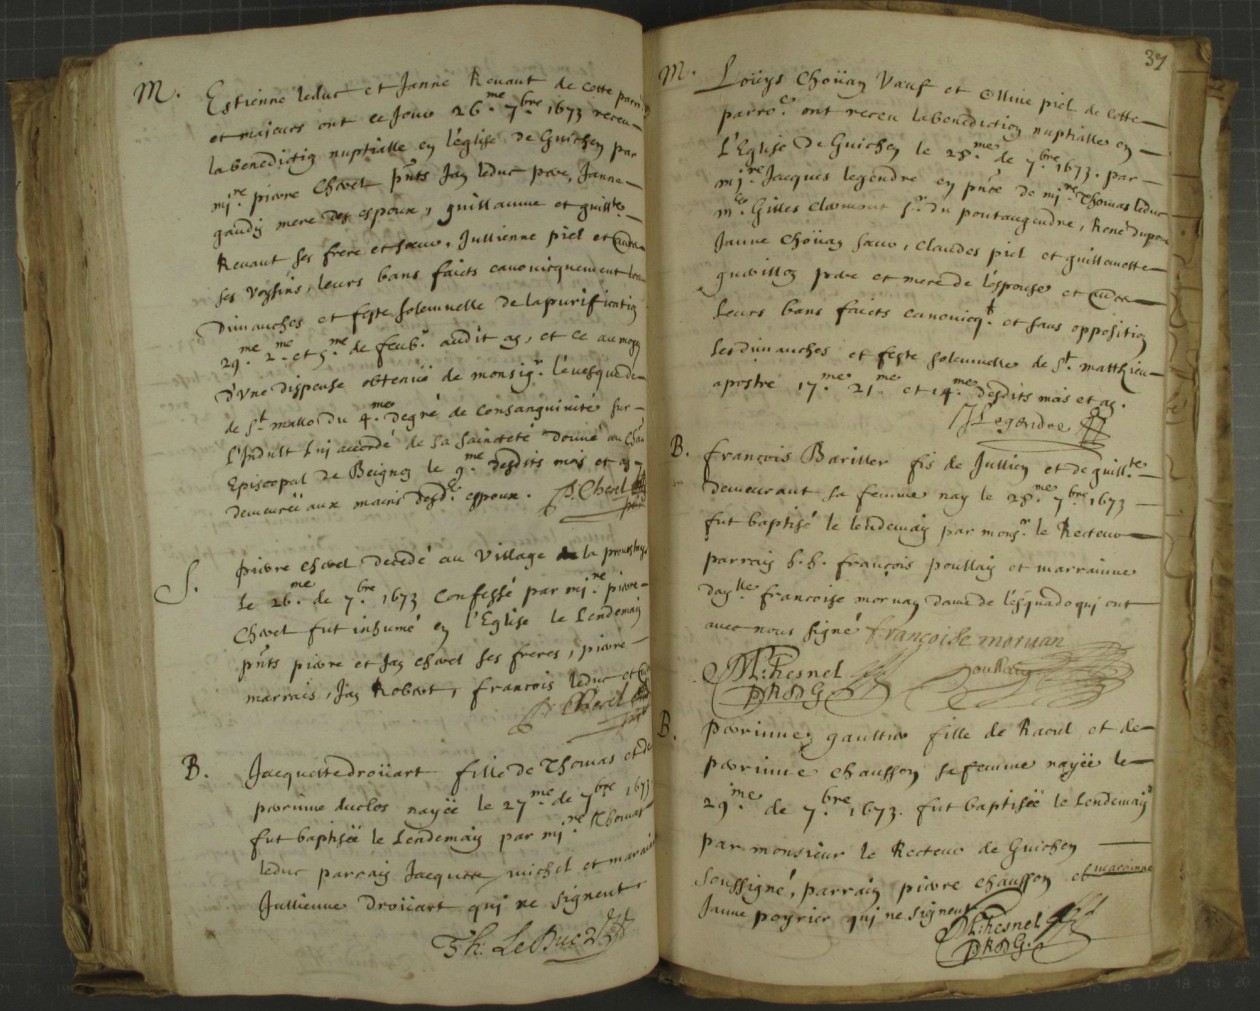 M. Estienne leduc et Janne Renaut de cette parr
et majeurs ont ce jour 26.me 7.bre 1673 receu
la benedictiõ nuptialle en l'églisse de Guichen par
mi.re pierre Cherel pñts Jan leduc pere, Janne
gaudin mere des espoux, guillaume et guill.te
Renaut ses frere et soeur, Jullienne piel et
ses voysins, leurs bans faicts canonicquement les
Dimanches et feste solemnelle de la purificatiõ
29.me 2.me et 5.me de feub.r audit an, et ce au moyẽ
d'Une dispense obtenuë de monsig.r l'évesque de
de s.t mallo du 4.me degré de Consanguinité sur
l'Indult luj accordé de sa Saincteté donné au Cha
Episcopal de Beignon le 9.me desdits mois et an
demeurée aux mains desd. espoux. P. Cherel
S. pierre cherel decedé au Village de la
le 26.me de 7.bre 1673 Confessé par mi.re pierre
Cherel fut inhumé en l'Eglise le Lendemain
pñts pierre et Jan cherel ses freres, pierre
marrais, Jan Robert, francois leduc et
P. Cherel
B. Jacquette droüart fille de Thomas et de
perrinne duclos nayëe le 27.me de 7.bre 1673
fut baptisëe le Lendemain par mi.re Thomas
leduc parrain Jacques michel et maraine
Jullienne Droüart qui ne signent
Th: Le Duc
37
M. Loüys Choüan Veuf et Olliue piel de cette
parro.e ont receu la benedictiõ nuptialle en
l'Eglise De Guichen le 28.me de 7.bre 1673. par
mi.re Jacques legendre en pñce de mi.re Thomas leduc
m.e Gilles Clermont s.r du pontaugendre, René dupon
Janne Choüan soeur, Claudes piel et guillemette
pere et mere de l'espouse et
Leurs bans faicts canonicq.t et sans oppositiõ
les dimanches et feste solemnelle de s.t matthieu
apostre 17.me 21.me et 14.me desdits mois et an.
J Legendre
B. francois Bariller fis de Jullien et de guill.te
demeurant sa femme nay le 28.me 7.bre 1673
fut baptisé le lendemain par mons.r le Recteur
parrain h.h. francois poullain et marrainne
dag.lle francoise moruan dame de l'esquado qui ont
auec nous signé francoisse moruan
M: Fresnel
poullain
PR D G
B. perrinne gaultier fille de Raoul et de
perrinne chausson sa femme nayëe le
29.me de 7.bre 1673. fut baptisëe le Lendemain
par monsieur le Recteur de Guichen
soussigné, parrain pierre chausson et maraine
Janne poyrier qui ne signent
M: Fresnel
PR D G.